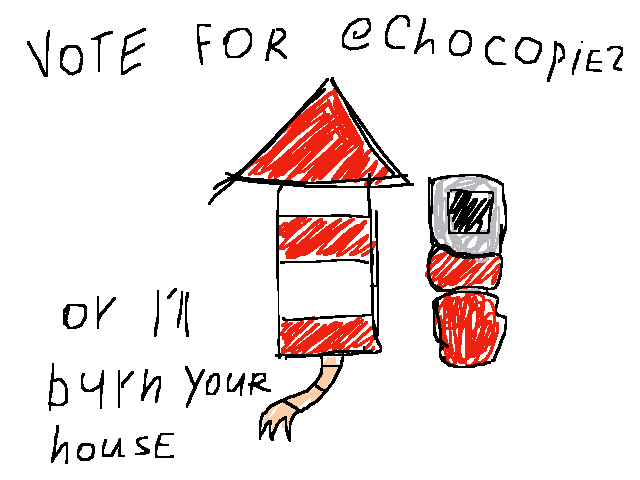 VOTE FOR @Chocopiez
or I'll
burn YOUR
house